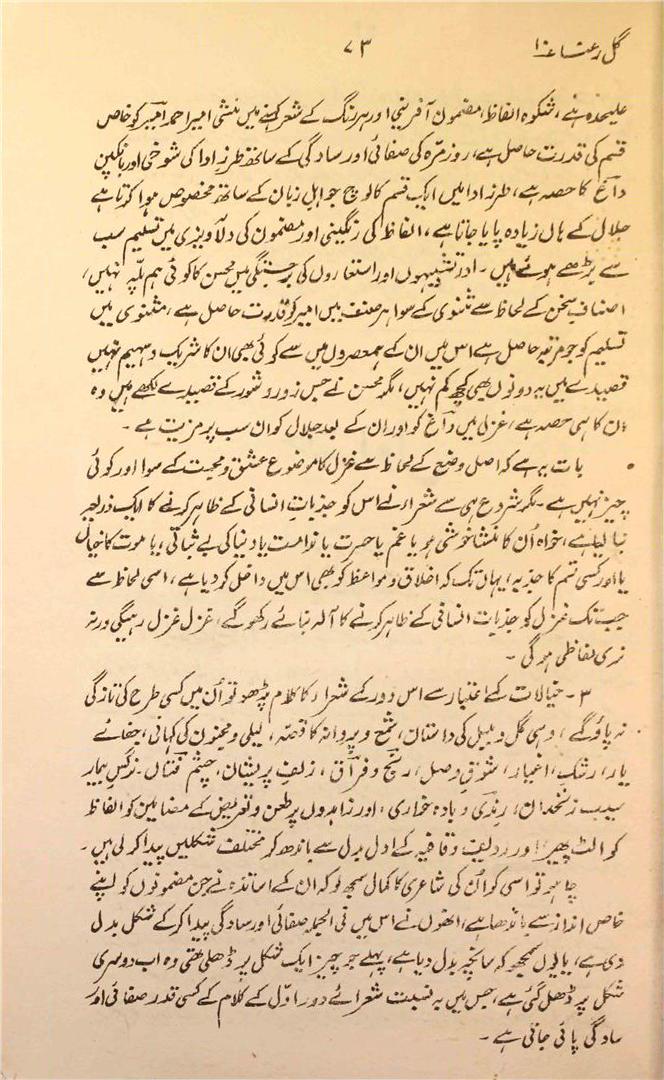 گل رعنا ۷۳
علیحدہ ہے، شکوہ الفاظ، مضمون آفرینی اور ہر رنگ کے شعر کہنے میں منشی امیر احمد امیر کو خاص
قسم کی قدرت حاصل ہے، روزمرّہ کی صفائی اور سادگی کے ساتھ طرز ادا کی شوخی اور بانکپن
داغ کا حصہ ہے، طرز ادا میں ایک قسم کا لوچ جو اہل زبان کے ساتھ مخصوص ہوا کرتا ہے
جلال کے ہاں زیادہ پایا جاتا ہے، الفاظ کی رنگینی اور مضمون کی دلآویزی میں تسلیم سب
سے بڑھے ہوئے ہیں۔ اور تشبیہوں اور استعاروں کی برجستگی میں محسن کا کوئی ہم پلّہ نہیں،
اصناف سخن کے لحاظ سے مثنوی کے سوا ہر صنف میں امیر کو قدرت حاصل ہے، مثنوی میں
تسلیم کو جو مرتبہ حاصل ہے اس میں ان کے ہمعصروں میں سے کوئی بھی ان کا شریک و سہیم نہیں
قصیدے میں یہ دونوں بھی کچھ کم نہیں، مگر محسن نے جس زور و شور کے قصیدے لکھے ہیں وہ
ان کا ہی حصہ ہے، غزل میں داغ کو اور ان کے بعد جلال کو ان سب پر مزیت ہے۔
بات یہ ہے کہ اصل وضع کے لحاظ سے غزل کا موضوع عشق و محبت کے سوا اور کوئی
چیز نہیں ہے۔ مگر شروع ہی سے شعراء نے اس کو جذبات انسانی کے ظاہر کرنے کا ایک ذریعہ
بنا لیا ہے، خواہ اُن کا منشا خوشی ہو یا غم یا حسرت یا ندامت یا دنیا کی بے ثباتی، یا موت کا خیال
یا اور کسی قسم کا جذبہ، یہاں تک کہ اخلاق و مواعظ کو بھی اس میں داخل کر دیا ہے، اسی لحاظ سے
جب تک غزل کو جذبات انسانی کے ظاہر کرنے کا آلہ بنائے رکھو گے، غزل غزل رہیگی ورنہ
نری لفاظی ہوگی۔
۳۔ خیالات کے اعتبار سے اس دور کے شعراء کا کلام پڑھو تو اُن میں کسی طرح کی تازگی
نہ پاؤ گے، وہی گل و بلبل کی داستان، شمع و پروانہ کا قصّہ، لیلی و مجنون کی کہانی، جفائے
یار، رشک، اغیار، شوق وصل، رنج و فراق، زلف پریشان، چشم فتاں۔ نرگس بیمار
سیب زنخدان، رندی و بادہ خواری، اور زاہدوں پر طعن و تعریض کے مضامین کو الفاظ
کو الٹ پھیر اور ردیف و قافیہ کے ادل بدل سے باندھ کر مختلف شکلیں پیدا کر لی ہیں۔
چاہو تو اسی کو اُن کی شاعری کا کمال سمجھ لو کہ ان کے اساتذہ نے جن مضمونوں کو اپنے
خاص انداز سے باندھا ہے، انھوں نے اس میں فی الجملہ صفائی اور سادگی پیدا کر کے شکل بدل
دی ہے، یا یوں سمجھو کہ سانچہ بدل دیا ہے، پہلے جو چیز ایک شکل پر ڈھلی تھی وہ اب دوسری
شکل پر ڈھل گئی ہے، جس میں بہ نسبت شعرائے دور اوّل کے کلام کے کسی قدر صفائی اور
سادگی پائی جاتی ہے۔